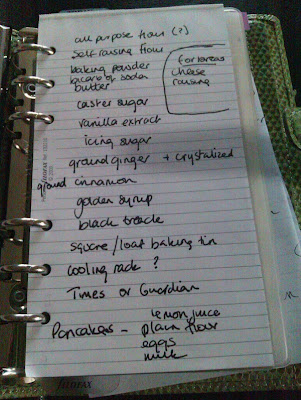 all purpose flour (?)
self raising flour
baking powder
bicarb of soda
butter
caster sugar
vanilla extract
icing sugar
ground ginger + crystalized
ground cinnamon
golden syrup
black treacle
square/loaf baking tin
cooling rack ?
Times or Guardian
Pancakes - lemon juice
plain flour
eggs
milk
cheese
FILOFAX